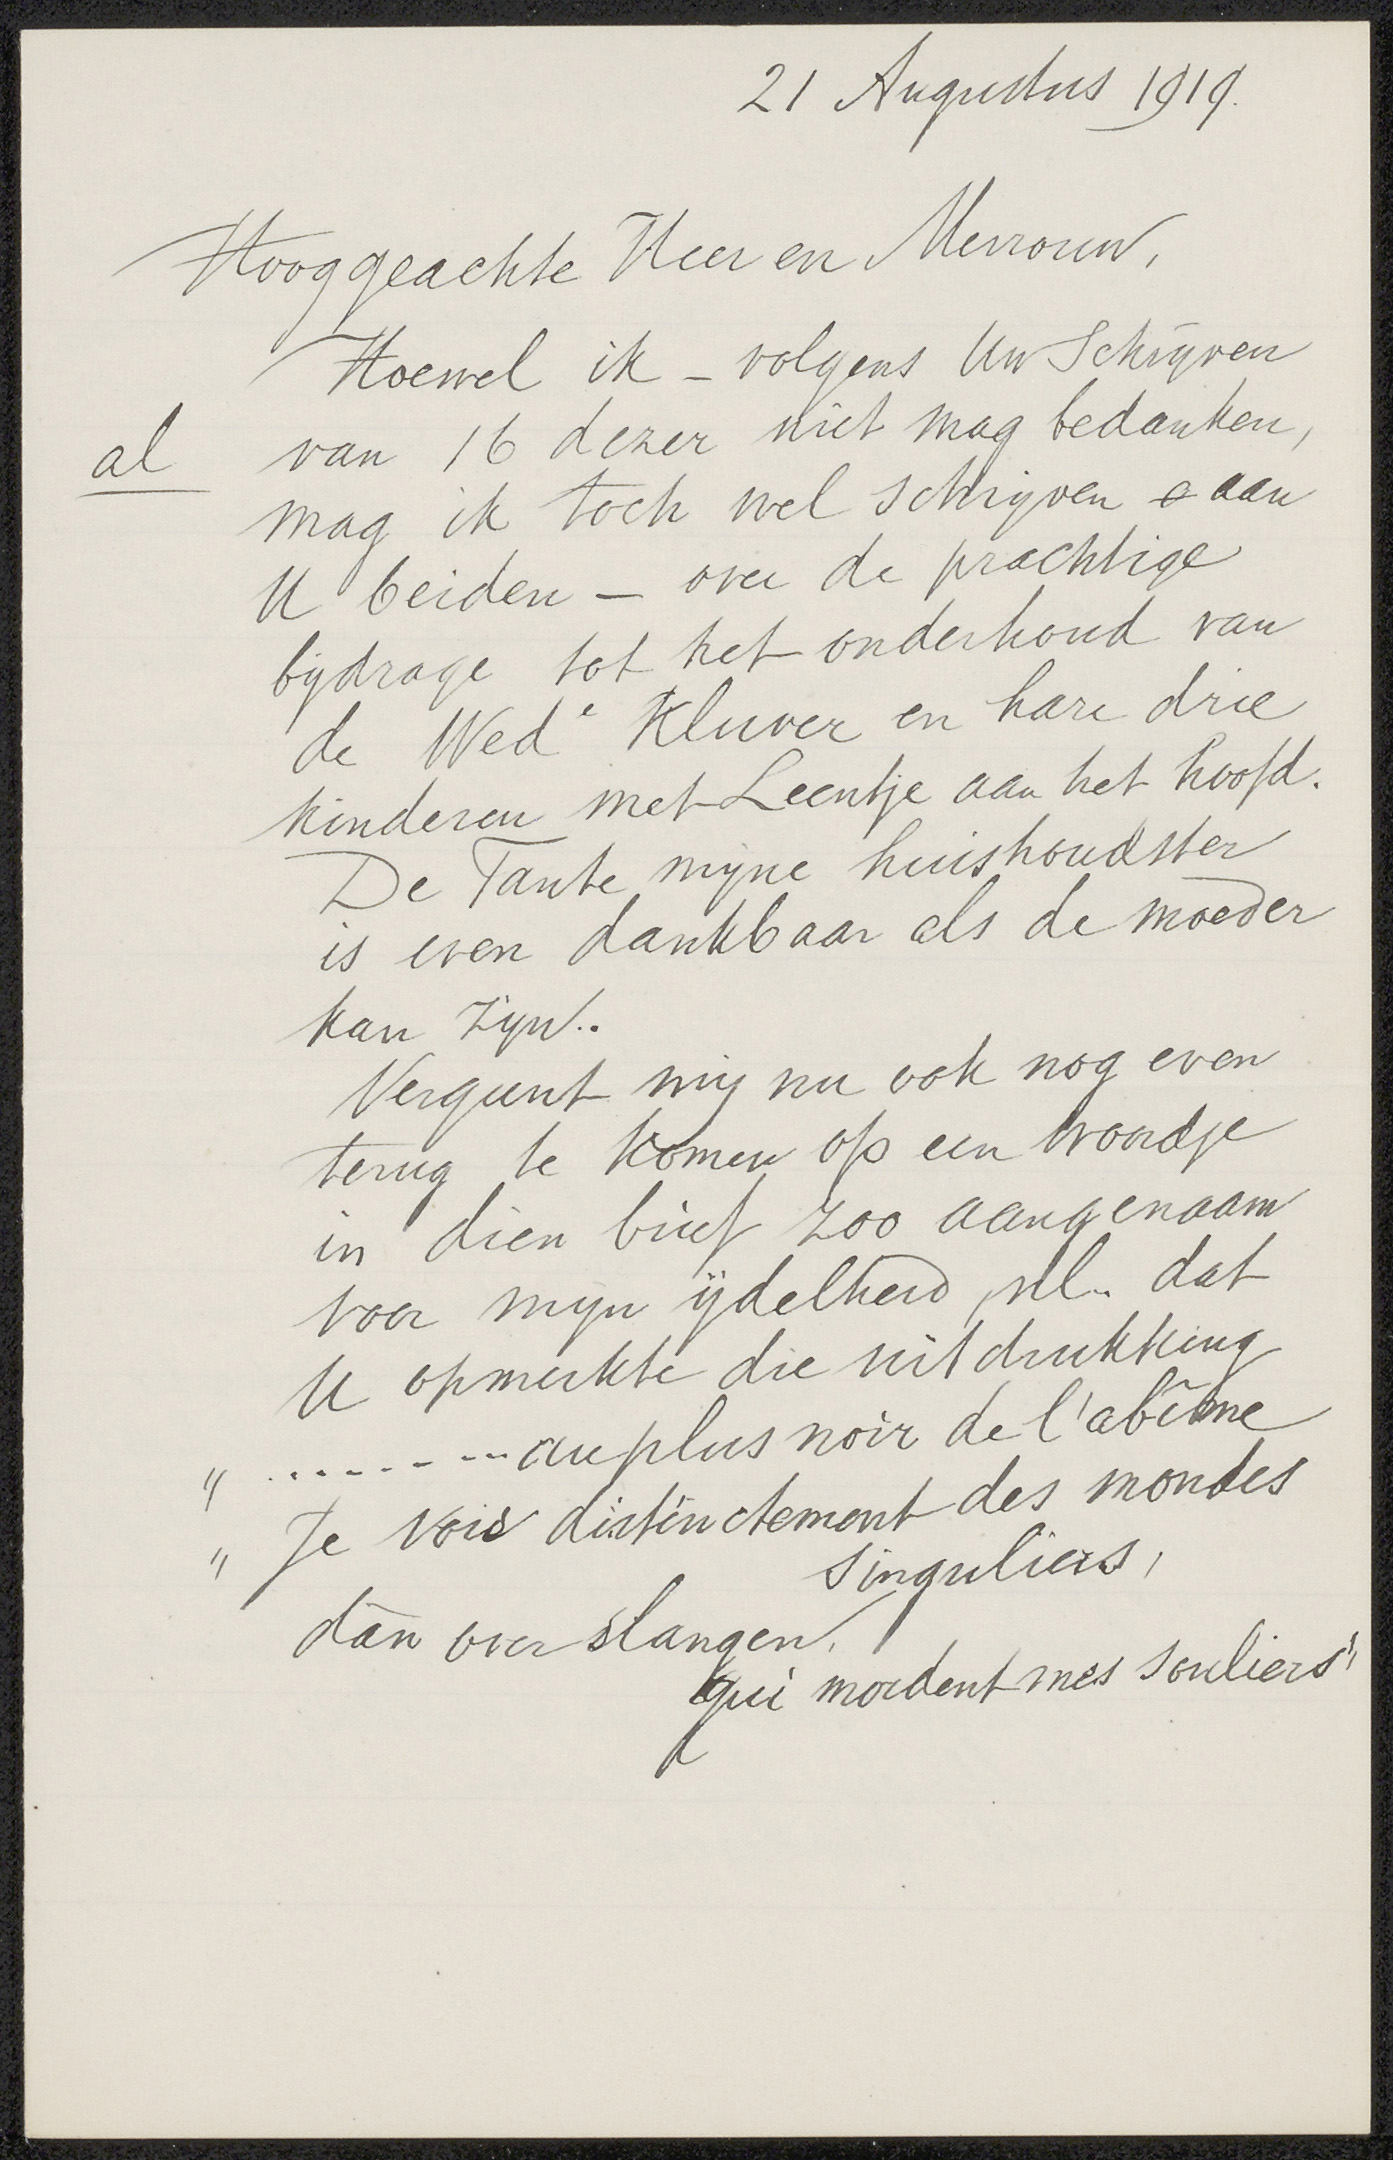 21 Augustus 1919.
Hooggeachte Heer en Mevrouw,
Hoewel ik – volgens Uw schrijven
al van 16 dezer niet mag bedanken,
mag ik toch wel schrijven aan
U beiden – over de prachtige
bijdrage tot het onderhoud van
de Wede Kluver en hare drie
kinderen met Leentje aan het hoofd.
De Tante mijne huishoudster
is even dankbaar als de moeder
kan zijn..
Vergunt mij nu ook nog even
terug te komen op een woordje
in dien brief zoo aangenaam
voor mijn ijdelheid, nl. dat
U opmerkte die uitdrukking
"......... au plus noir de l'abîme
" Je vois distinctement des mondes
singuliers,
dan over slangen.
qui mordent mes souliers"